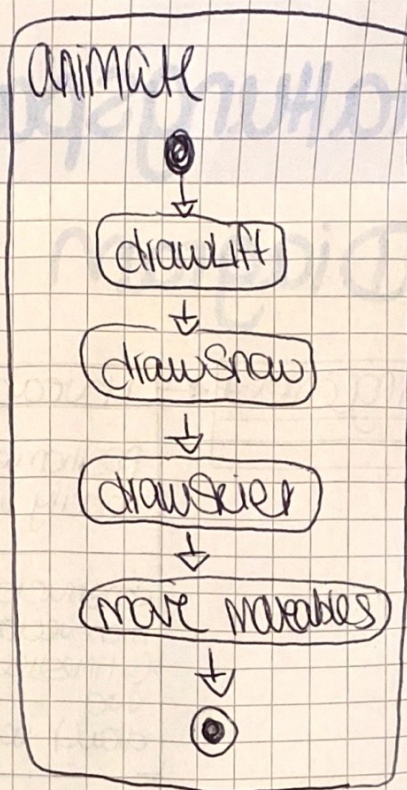 animate
drawLift
drawSnow
drawSkier
move moveables